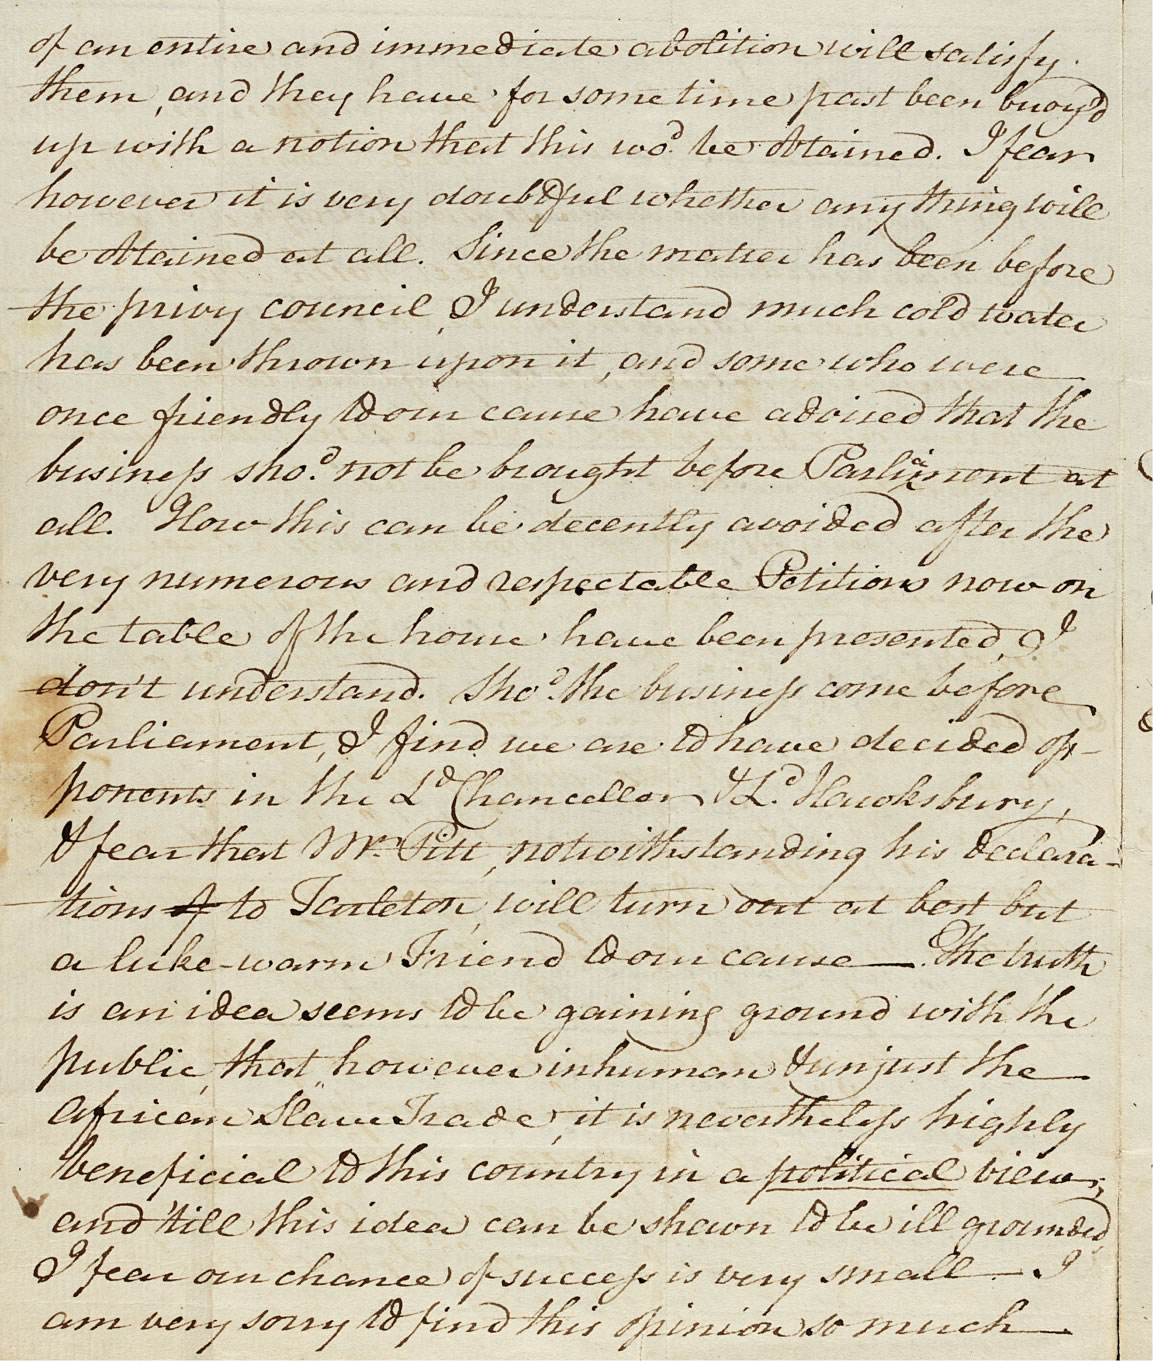 of an entire and immediate abolition will satisfy
them, and they have for some time past been buoy'd
up with a notion that this wod. be obtained. I fear
however it is very doubtful whether any thing will
be obtained at all. Since the matter has been before
the privy council, I understand much cold water
has been thrown upon it, and some who were
once friendly to our cause have advised that the
business shod. not be brought before Parliament at
all. How this can be decently avoided after the
very numerous and respectable Petitions now on
the table of the house have been presented, I
don't understand. Shod. the business come before
Parliament, I find we are to have decided op-
ponents in the Ld Chancellor & Ld. Hawksbury,
& fear that Mr. Pitt, notwithstanding his declara-
tions to Tarleton, will turn out at best but
a luke-warm Friend to our cause — The truth
is an idea seems to be gaining ground with the
public, that however inhuman & unjust the
African Slave Trade, it is nevertheless highly
beneficial to this country in a political view;
and 'till this idea can be shewn to be ill grounded,
I fear our chance of success is very small — I
am very sorry to find this opinion so much